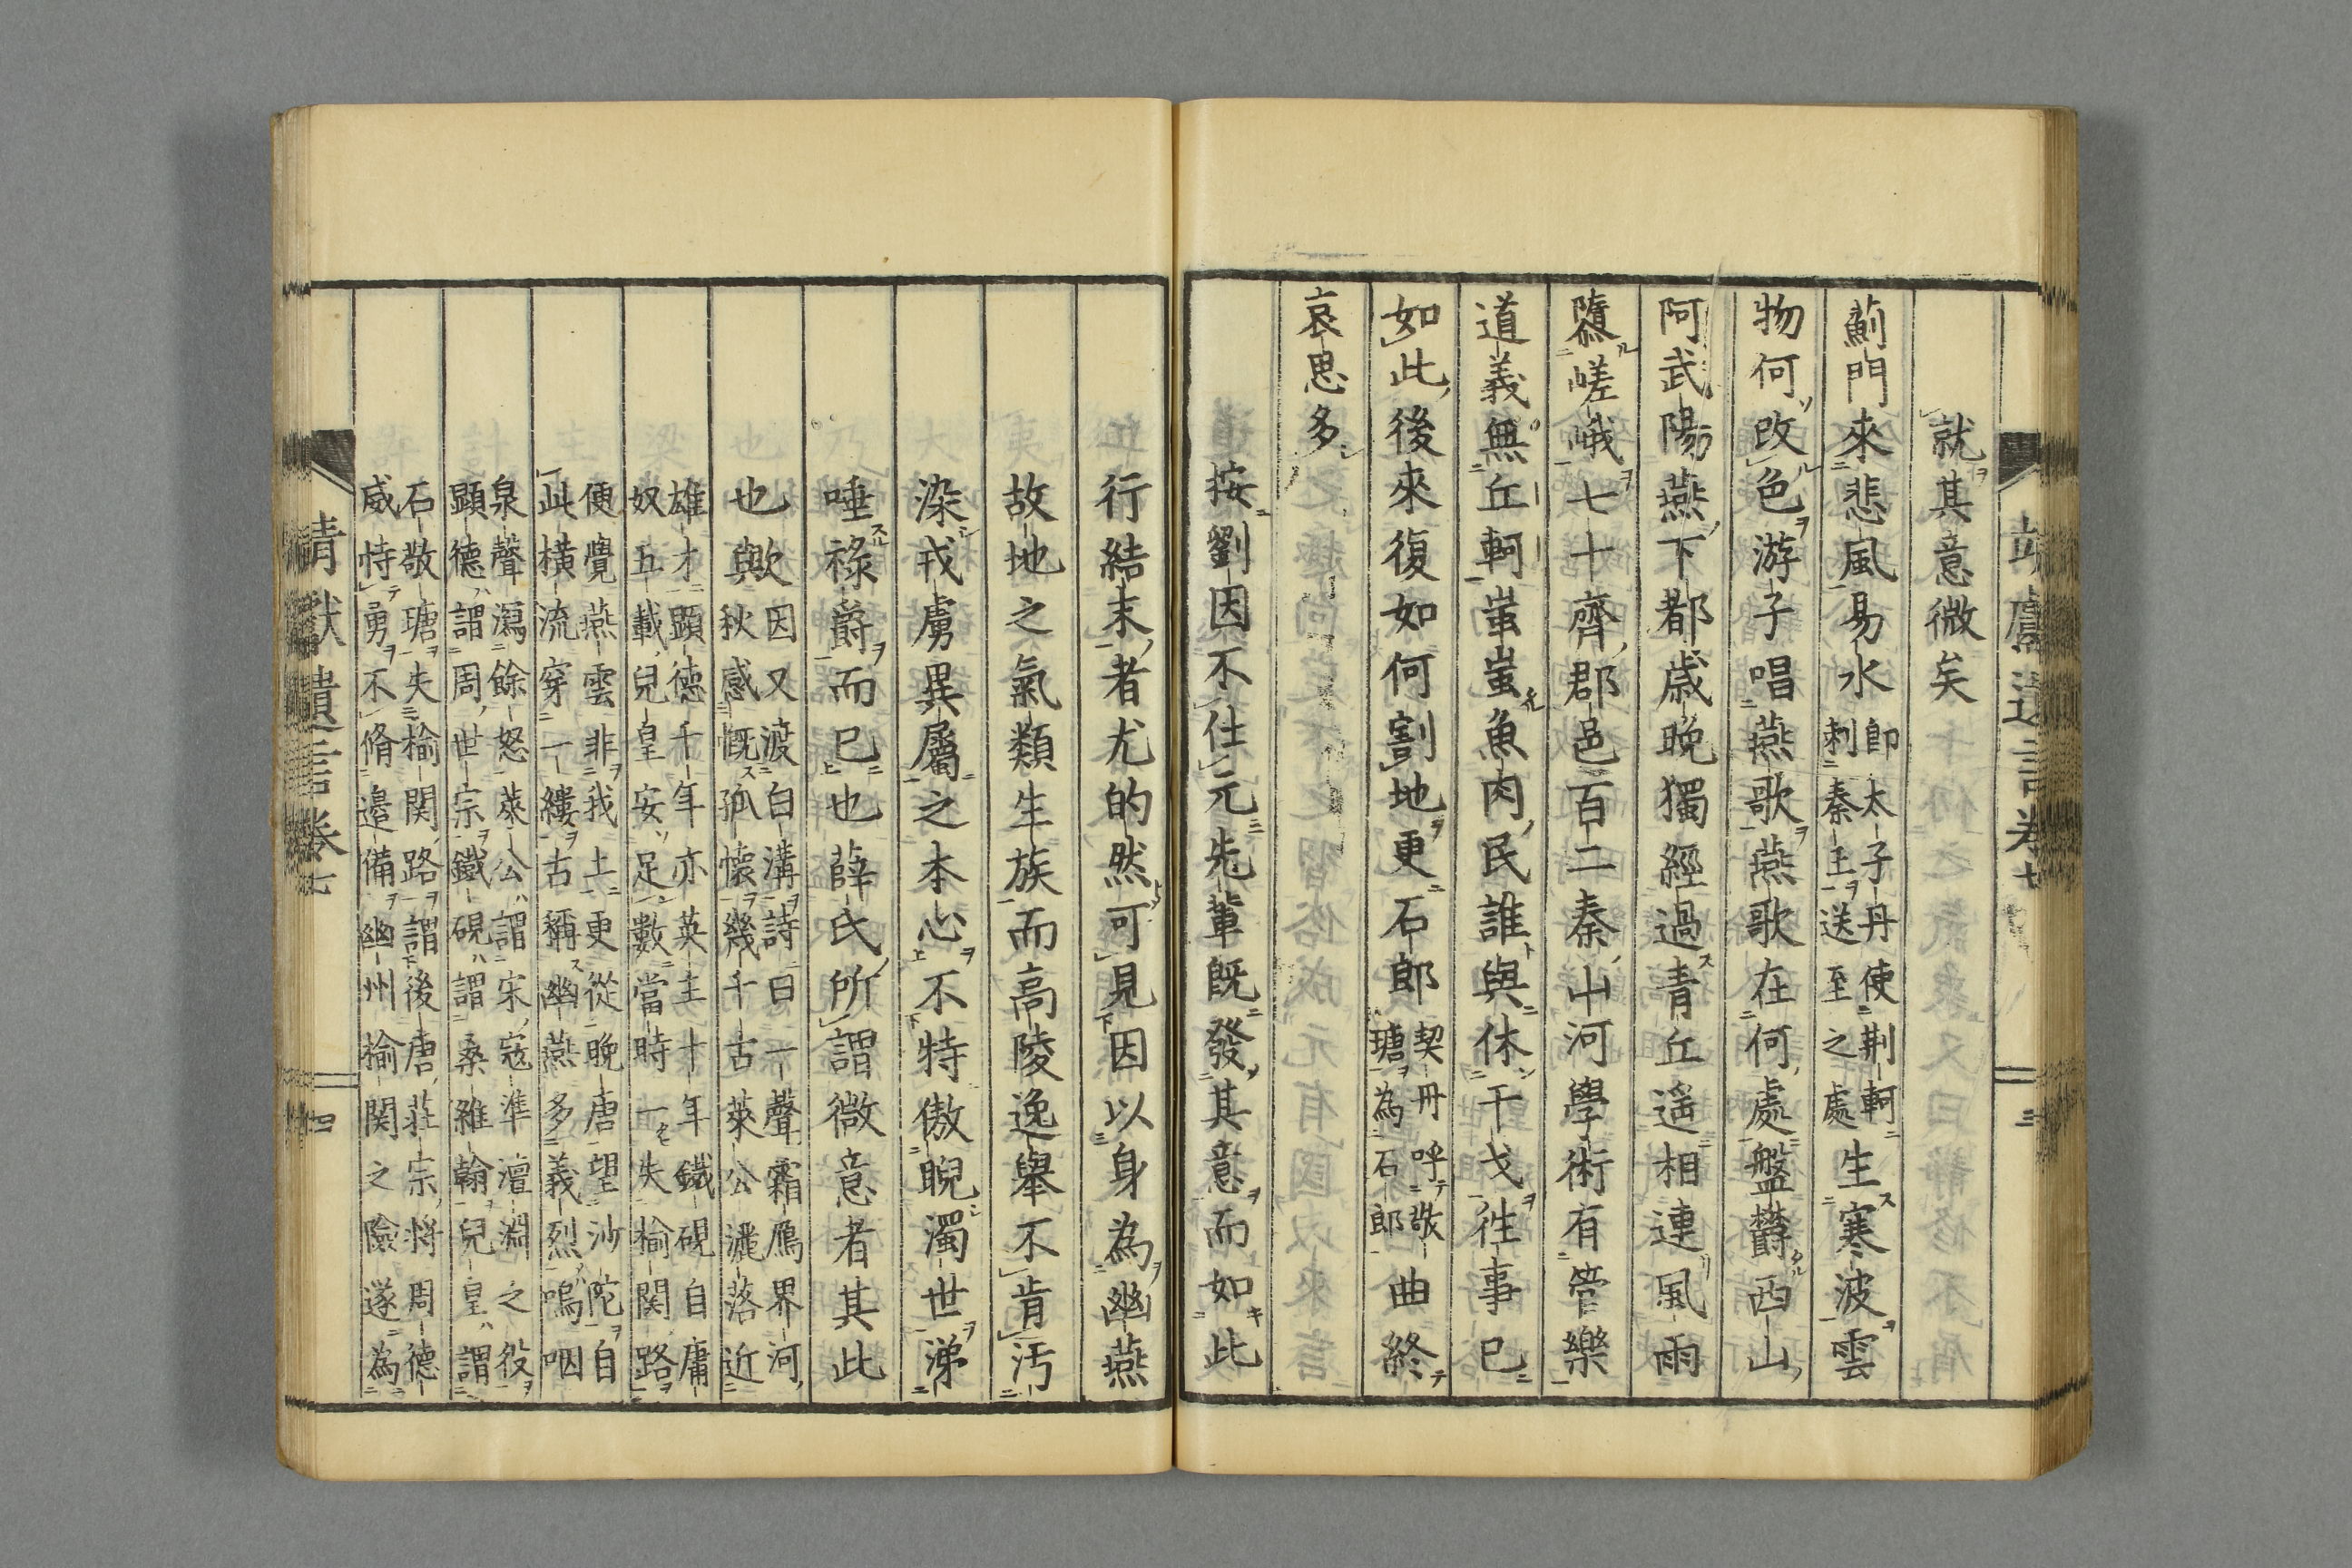 就其意微矣
薊門來悲風易水即太子丹使荆軻刺秦王送至之處生寒波雲
物何改色游子唱燕歌燕歌在何處盤欝西山
阿武陽燕下都歳晩獨經過青丘遥相連風雨
隳嵯峨七十齊郡邑百二秦山河學術有管樂
道義無丘軻蚩蚩魚肉民誰與休干戈徃事已
如此後來復如何割地更石郎契丹呼敬瑭為石郎曲終
哀思多
按劉因不仕元先輩既發其意而如此
行結末者尤的然可見因以身為幽燕
故地之氣類生族而高陵逸舉不肯汚
染戎虜異屬之本心不特傲睨濁世涕
唾祿爵而已也薛氏所謂微意者其此
也歟因又渡白溝詩曰一聲霜鴈界河
與秋感慨孤懷幾千古萊公灑落近
雄才顕德千年亦英主十年鐵硯自庸
奴五載兒皇安足數當時一失榆関路
便覺燕雲非我土更從晩唐望沙陀自
此橫流穿一縷古稱幽燕多義烈嗚咽
泉聲瀉餘怒萊公謂宋寇準澶淵之役
顕德謂周世宗鐵硯謂桑維翰兒皇謂
石敬瑭失榆関路謂後唐莊宗將周德
威恃勇不脩邊備幽州榆関之險遂為
靖獻遺言卷七
四